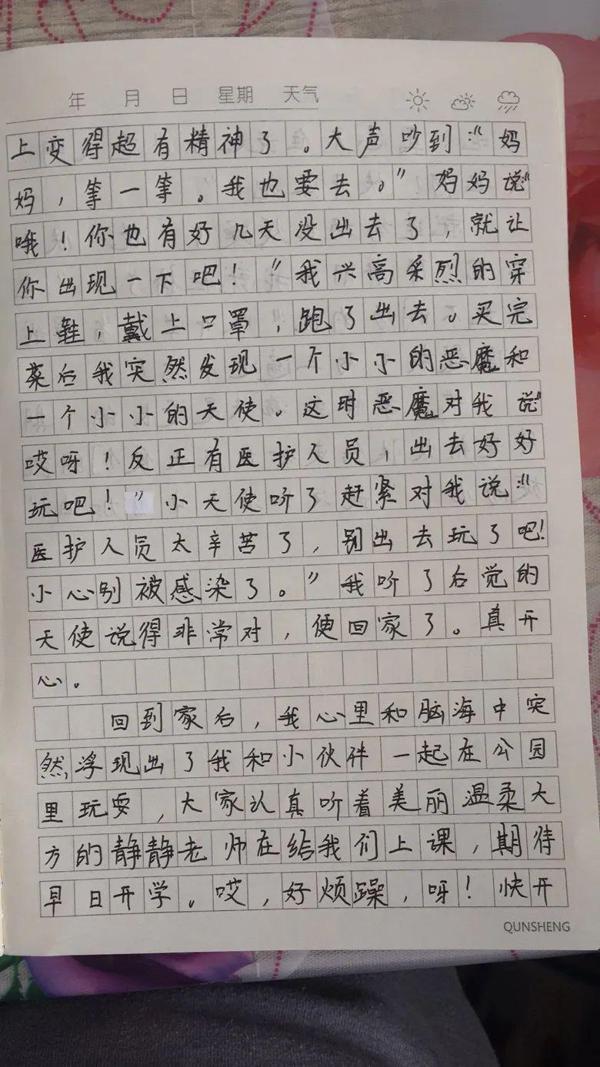 年 月 日 星期 天气
上变得超有精神了。大声吵到:“妈
妈，等一等。我也要去。”妈妈说:“
哦！你也有好几天没出去了，就让
你出现一下吧！”我兴高采烈的穿
上鞋，戴上口罩，跑了出去。买完
菜后我突然发现一个小小的恶魔和
一个小小的天使。这时恶魔对我说:“
哎呀！反正有医护人员，出去好好
玩吧！”小天使听了赶紧对我说:“
医护人员太辛苦了，别出去玩了吧！
小心别被感染了。”我听了后觉的
天使说得非常对，便回家了。真开
心。
回到家后，我心里和脑海中突
然浮现出了我和小伙伴一起在公园
里玩耍，大家认真听着美丽温柔大
方的静静老师在给我们上课，期待
早日开学。哎，好烦躁，呀！快开
QUNSHENG